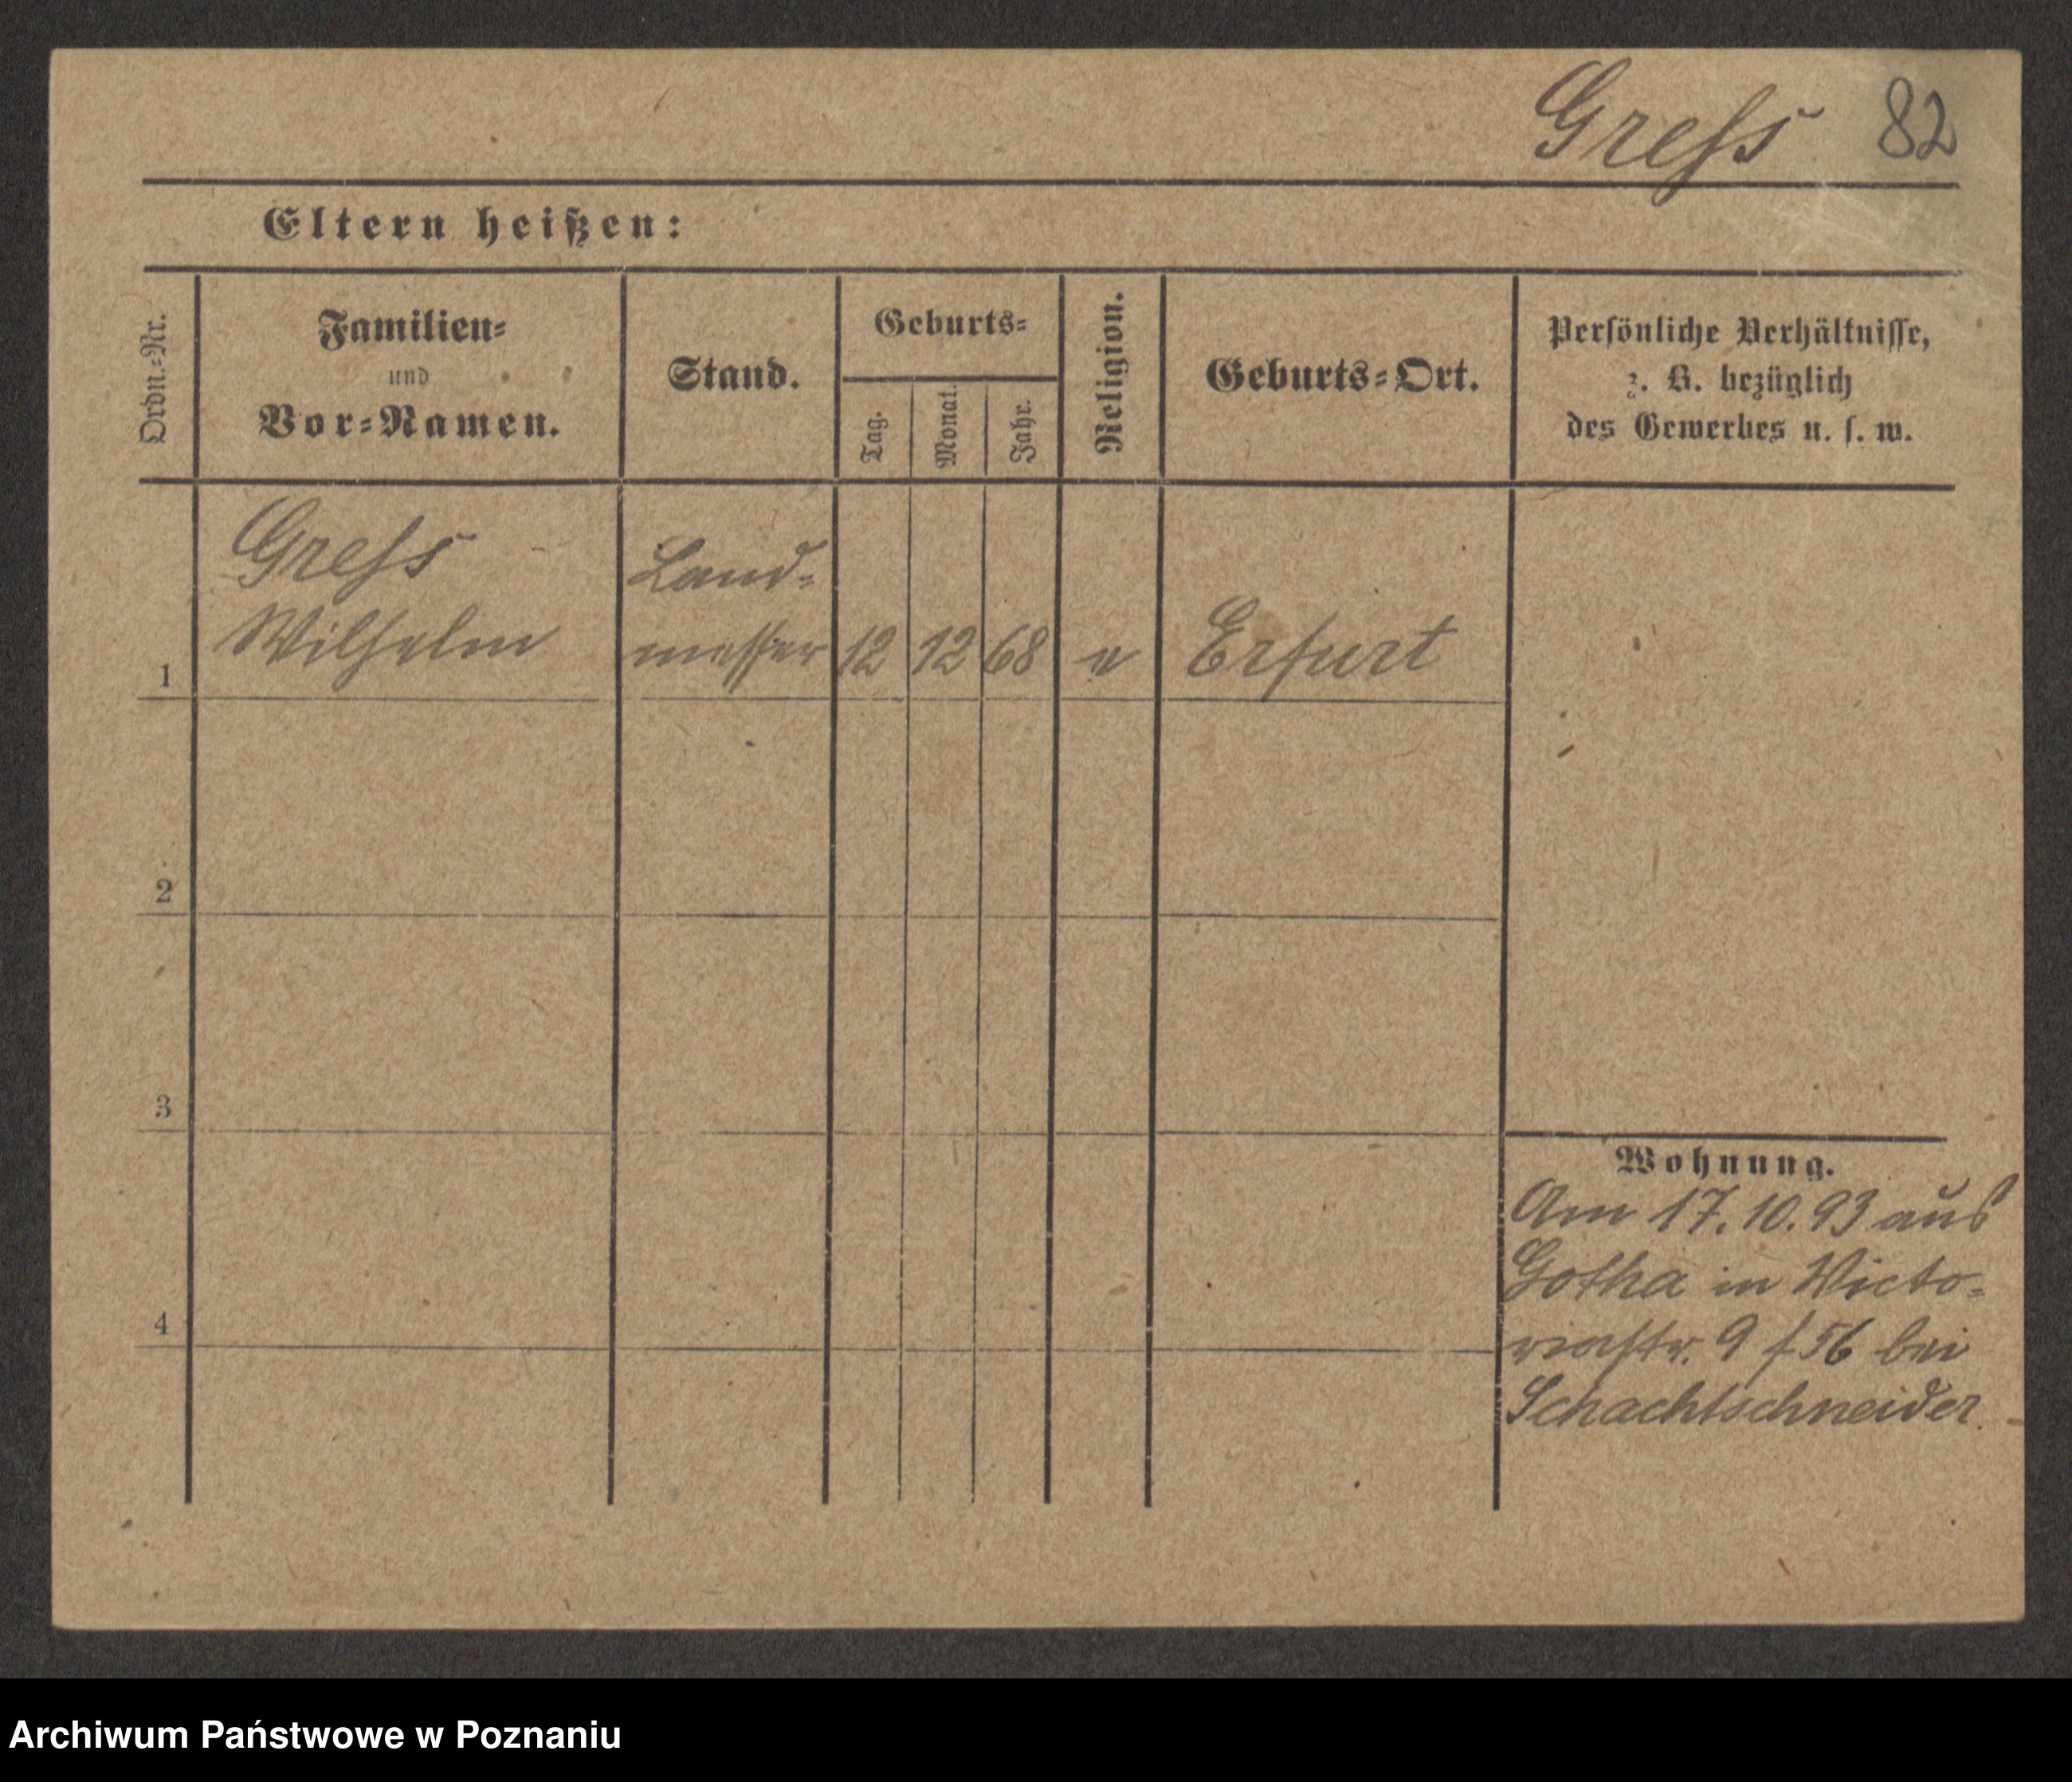 Greſs 82
Eltern heißen:
Ordn.=Nr.
Familien=
und
Vor=Namen.
Stand.
Geburts=
Tag.
Monat.
Jahr.
Religion.
Geburts=Ort.
Perſönliche Verhältniſſe,
z. B. bezüglich
des Gewerbes u. ſ. w.
1
Greſs
Wilhelm
Land=
meſſer
12 12 68 e Erfurt
2
3
4
Wohnung.
Am 17.10.93 aus
Gotha in Victo=
riaſtr. 9 f 56 bei
Schachtschneider.
Archiwum Państwowe w Poznaniu